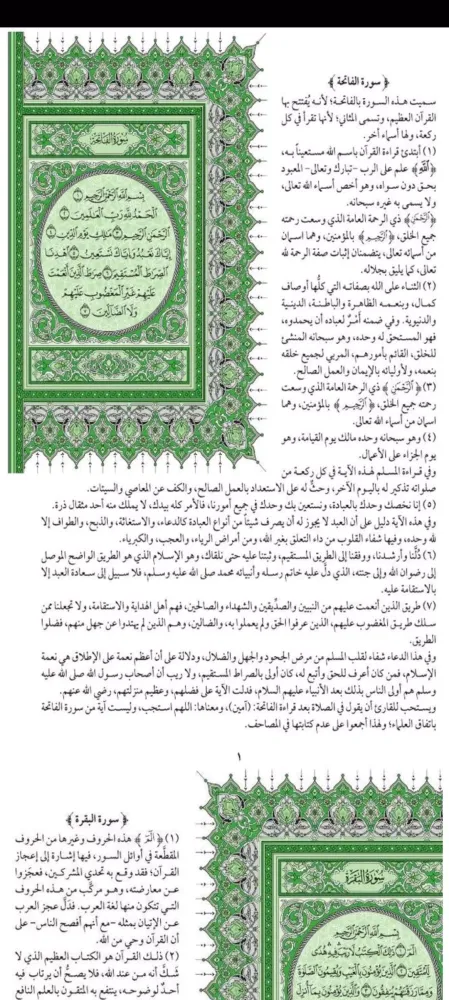 ﴿ سورة الفاتحة ﴾
سميت هذه السورة بالفاتحة؛ لأنه يُفتتح بها
القرآن العظيم، وتسمى المثاني؛ لأنها تقرأ في كل
ركعة، ولها أسماء أخر.
(١) أبتدئ قراءة القرآن باسم الله مستعيناً به،
﴿ٱللَّهِ﴾ علم على الرب -تبارك وتعالى- المعبود
بحق دون سواه، وهو أخص أسماء الله تعالى،
ولا يسمى به غيره سبحانه.
﴿ٱلرَّحْمَٰنِ﴾ ذي الرحمة العامة الذي وسعت رحمته
جميع الخلق، ﴿ٱلرَّحِيمِ﴾ بالمؤمنين، وهما اسمان
من أسمائه تعالى، يتضمنان إثبات صفة الرحمة لله
تعالى، كما يليق بجلاله.
(٢) الثناء على الله بصفاته التي كلُّها أوصاف
كمال، وبنعمه الظاهرة والباطنة، الدينية
والدنيوية. وفي ضمنه أَمْرٌ لعباده أن يحمدوه،
فهو المستحق له وحده، وهو سبحانه المنشئ
للخلق، القائم بأمورهم، المربي لجميع خلقه
بنعمه، ولأوليائه بالإيمان والعمل الصالح.
(٣) ﴿ٱلرَّحْمَٰنِ﴾ ذي الرحمة العامة الذي وسعت
رحمته جميع الخلق، ﴿ٱلرَّحِيمِ﴾ بالمؤمنين، وهما
اسمان من أسماء الله تعالى.
(٤) وهو سبحانه وحده مالك يوم القيامة، وهو
يوم الجزاء على الأعمال.
وفي قراءة المسلم لهذه الآية في كل ركعة من
سُورَةُ الفَاتِحَةِ
بِسْمِ ٱللَّهِ ٱلرَّحْمَٰنِ ٱلرَّحِيمِ ١
ٱلْحَمْدُ لِلَّهِ رَبِّ ٱلْعَٰلَمِينَ ٢
ٱلرَّحْمَٰنِ ٱلرَّحِيمِ ٣ مَٰلِكِ يَوْمِ ٱلدِّينِ ٤
إِيَّاكَ نَعْبُدُ وَإِيَّاكَ نَسْتَعِينُ ٥ ٱهْدِنَا
ٱلصِّرَٰطَ ٱلْمُسْتَقِيمَ ٦ صِرَٰطَ ٱلَّذِينَ أَنْعَمْتَ
عَلَيْهِمْ غَيْرِ ٱلْمَغْضُوبِ عَلَيْهِمْ
وَلَا ٱلضَّآلِّينَ ٧
صلواته تذكير له باليوم الآخر، وحثٌّ له على الاستعداد بالعمل الصالح، والكف عن المعاصي والسيئات.
(٥) إنا نخصك وحدك بالعبادة، ونستعين بك وحدك في جميع أمورنا، فالأمر كله بيدك، لا يملك منه أحد مثقال ذرة.
وفي هذه الآية دليل على أن العبد لا يجوز له أن يصرف شيئاً من أنواع العبادة كالدعاء، والاستغاثة، والذبح، والطواف إلا
لله وحده، وفيها شفاء القلوب من داء التعلق بغير الله، ومن أمراض الرياء، والعجب، والكبرياء.
(٦) دُلَّنا وأرشدنا، ووفقنا إلى الطريق المستقيم، وثبتنا عليه حتى نلقاك، وهو الإسلام الذي هو الطريق الواضح الموصل
إلى رضوان الله وإلى جنته، الذي دلَّ عليه خاتم رسله وأنبيائه محمد صلى الله عليه وسلم، فلا سبيل إلى سعادة العبد إلا
بالاستقامة عليه.
(٧) طريق الذين أنعمت عليهم من النبيين والصدِّيقين والشهداء والصالحين، فهم أهل الهداية والاستقامة، ولا تجعلنا ممن
سلك طريق المغضوب عليهم، الذين عرفوا الحق ولم يعملوا به، والضالين، وهم الذين لم يهتدوا عن جهل منهم، فضلوا
الطريق.
وفي هذا الدعاء شفاء لقلب المسلم من مرض الجحود والجهل والضلال، ودلالة على أن أعظم نعمة على الإطلاق هي نعمة
الإسلام، فمن كان أعرف للحق وأتبع له، كان أولى بالصراط المستقيم، ولا ريب أن أصحاب رسول الله صلى الله عليه
وسلم هم أولى الناس بذلك بعد الأنبياء عليهم السلام، فدلت الآية على فضلهم، وعظيم منزلتهم، رضي الله عنهم.
ويستحب للقارئ أن يقول في الصلاة بعد قراءة الفاتحة: (آمين)، ومعناها: اللهم استجب، وليست آية من سورة الفاتحة
باتفاق العلماء؛ ولهذا أجمعوا على عدم كتابتها في المصاحف.
١
﴿ سورة البقرة ﴾
(١) ﴿الٓمٓ﴾ هذه الحروف وغيرها من الحروف
المقطَّعة في أوائل السور، فيها إشارة إلى إعجاز
القرآن؛ فقد وقع به تحدي المشركين، فعجَزوا
عن معارضته، وهو مركَّب من هذه الحروف
التي تتكون منها لغة العرب. فدَلَّ عجز العرب
عن الإتيان بمثله -مع أنهم أفصح الناس- على
أن القرآن وحي من الله.
(٢) ذلك القرآن هو الكتاب العظيم الذي لا
شَكَّ أنه من عند الله، فلا يصحُّ أن يرتاب فيه
أحدٌ لوضوحه، ينتفع به المتقون بالعلم النافع
سُورَةُ البَقَرَةِ
بِسْمِ ٱللَّهِ ٱلرَّحْمَٰنِ ٱلرَّحِيمِ
الٓمٓ ١ ذَٰلِكَ ٱلْكِتَٰبُ لَا رَيْبَ فِيهِ هُدًى
لِّلْمُتَّقِينَ ٢ ٱلَّذِينَ يُؤْمِنُونَ بِٱلْغَيْبِ وَيُقِيمُونَ ٱلصَّلَوٰةَ
وَمِمَّا رَزَقْنَٰهُمْ يُنفِقُونَ ٣ وَٱلَّذِينَ يُؤْمِنُونَ بِمَآ أُنزِلَ